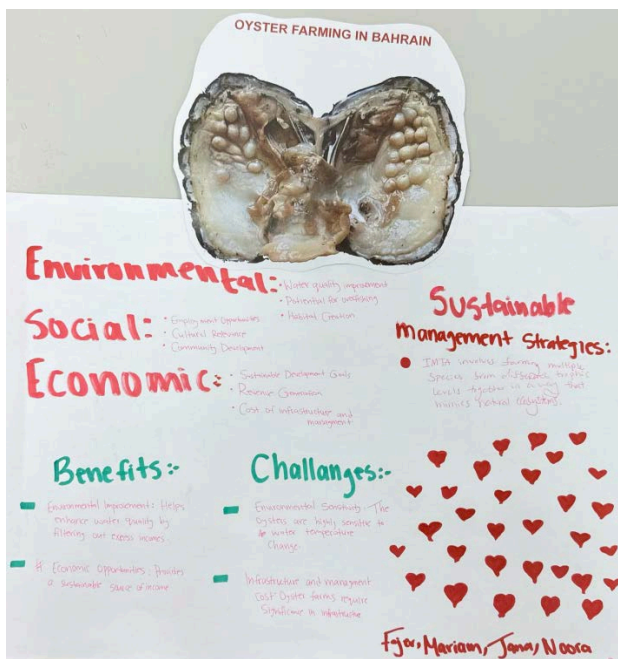 OYSTER FARMING IN BAHRAIN
Environmental:
• Water quality improvement
• Potential for overfishing
• Habitat Creation
Social:
• Employment Opportunities
• Cultural Relevance
• Community Development
Economic:
• Sustainable Development Goals
• Revenue Generation
• Cost of infrastructure and
management
Sustainable
management Strategies:
IMTA involves farming multiple
species from different trophic
levels together in a way that
mimics natural ecosystems.
Benefits:-
Environmental Improvement: Helps
enhance water quality by
filtering out excess
Economic Opportunities: Provides
a sustainable source of income
Challanges:-
Environmental Sensitivity: The
oysters are highly sensitive to
water temperature
Change.
Infrastructure and managment
cost Oyster farms require
Significance in infrastructure
Fajer, Mariam, Jana, Noora